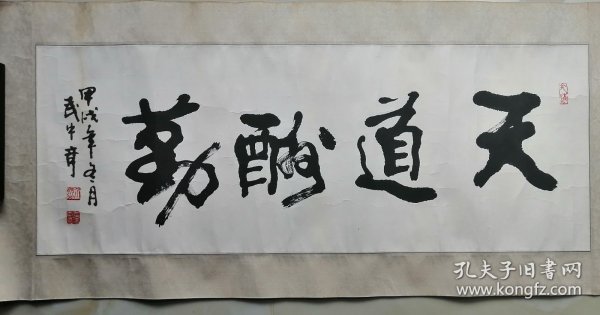 天道酬勤
甲戌年冬月
武中奇
孔夫子旧书网
www.kongfz.com